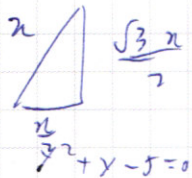 x
√3 x
2
x
y² + y - 5 = 0